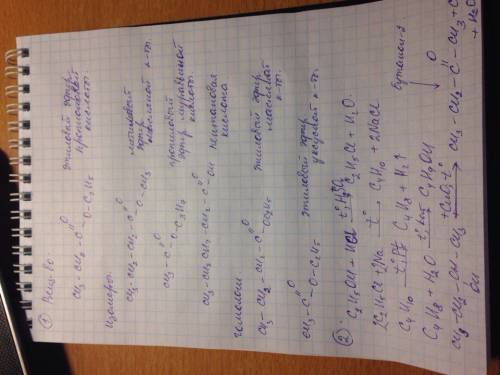 ① 
CH3-CH2-C-O-C2H5 этиловый эфир
O
пропионовой
кислоты.
Изомеры:
CH3-CH2-CH2-C-O-CH3 метиловый
O
эфир
масляной к-ты.
O
O-C3H7
кислоты.
CH3-CH2-CH2-CH2-C-OH пентановая
O
кислота
гомологи:
CH3-CH2-CH2-C-OC2H5 этиловый эфир
O
масляной
к-ты.
CH3-C-O-C2H5 этиловый эфир
O
уксусной к-ты.
② C2H5OH + HCl t, H2SO4 → C2H5Cl + H2O
2C2H5Cl + 2Na t° → C4H10 + 2NaCl
C4H10 t° Pt → C4H8 + H2↑
C4H8 + H2O → C4H9OH
CH3-CH2-CH-CH3 + CuO, t° → CH3-CH2-C-CH3 + Cu
OH O + H2O